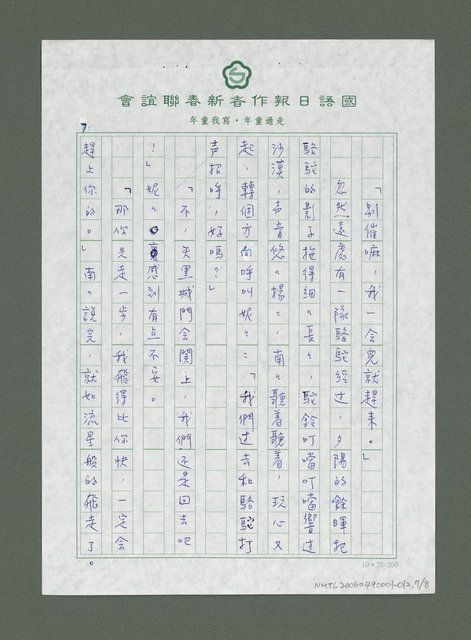 國語日報作者新春聯誼會
走過童年・寫我童年
7
「別催嘛,我一会兒就趕来。」
忽然遠處有一隊駱駝經过,夕陽的餘暉把
駱駝的影子拖得細々長々,駝鈴叮噹叮噹響过
沙漠,声音悠々揚々,南々聽着聽着,玩心又
起,轉個方向呼叫妮々:「我們过去和駱駝打
声招呼,好嗎?」
「不,天黑城門会関上,我們还是回去吧
!」妮々感到有点不安。
「那你先走一步,我飛得比你快,一定会
趕上你的。」南々說完,就如流星般的飛走了。
10×20=200
NMTL20060490001-012,7/8